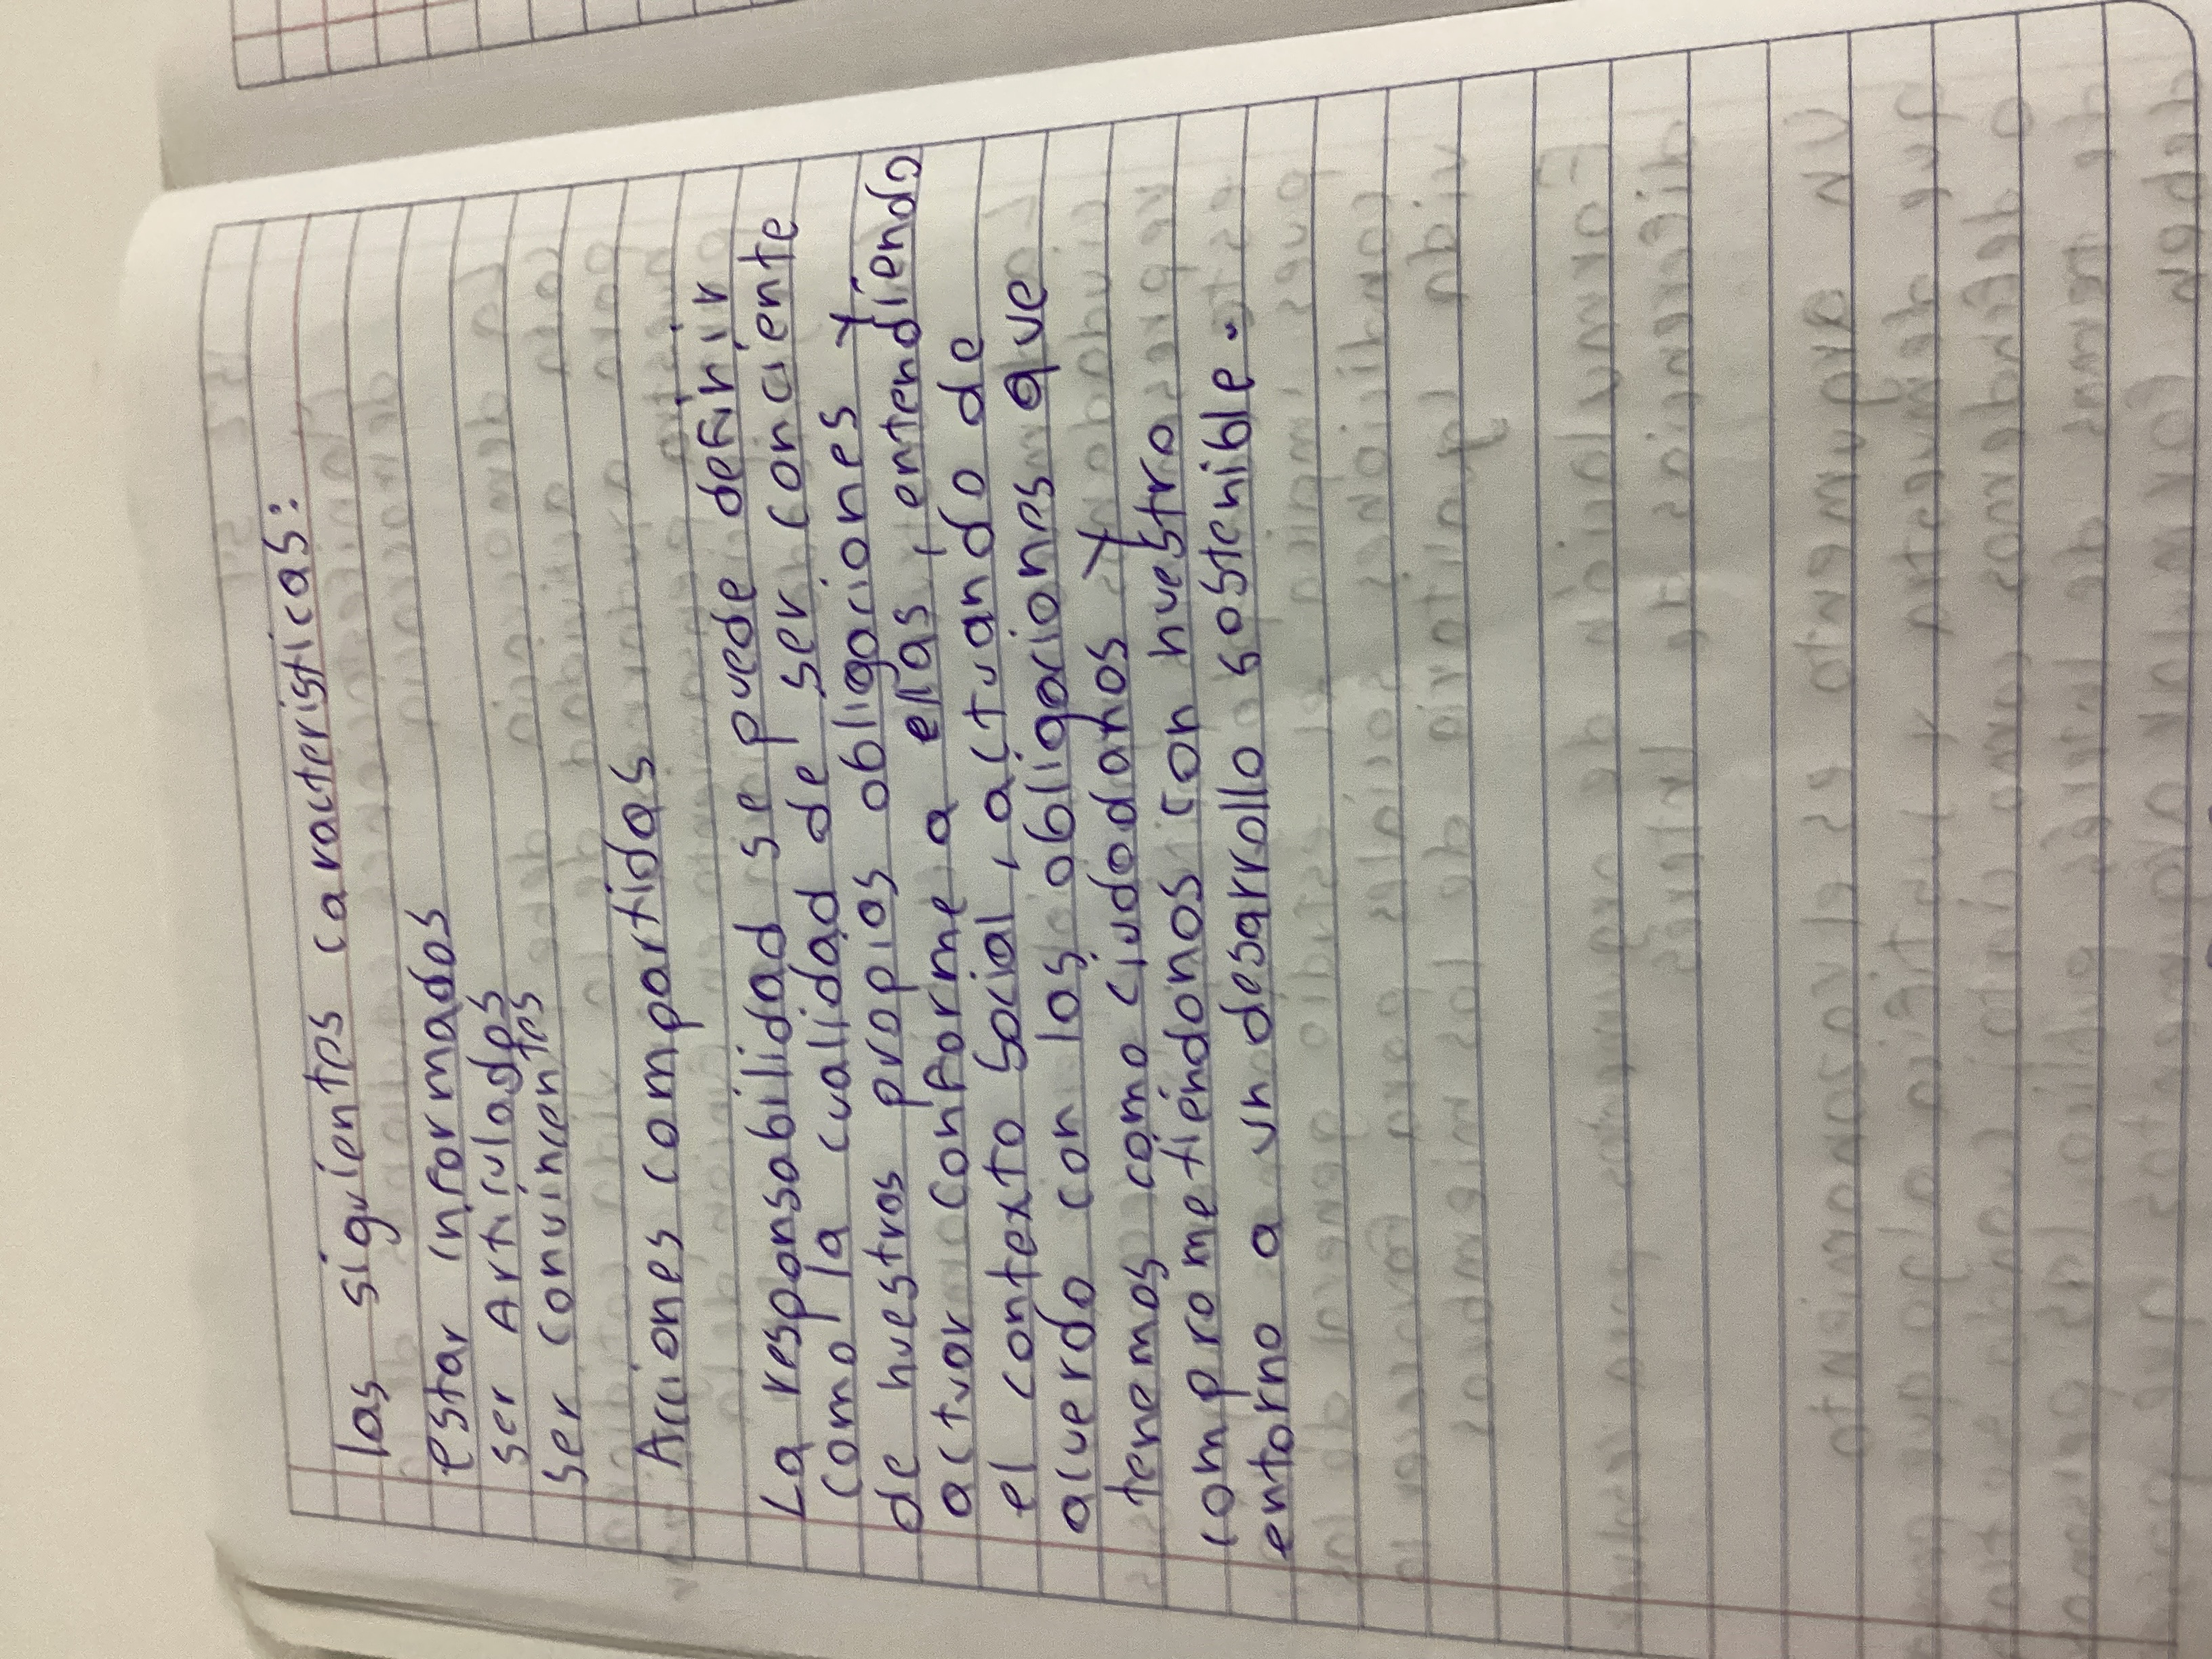 las siguientes caracteristicas:
estar informados
ser Articulados
ser convincentes
Acciones compartidas
La responsabilidad se puede definir
como la cualidad de ser conciente
de nuestros propios obligaciones y
actuar conforme a ellas, entendiendo
el contexto social, actuando de
acuerdo con las obligaciones que
tenemos como ciudadanos y
comprometiéndonos con nuestro
entorno a un desarrollo sostenible.